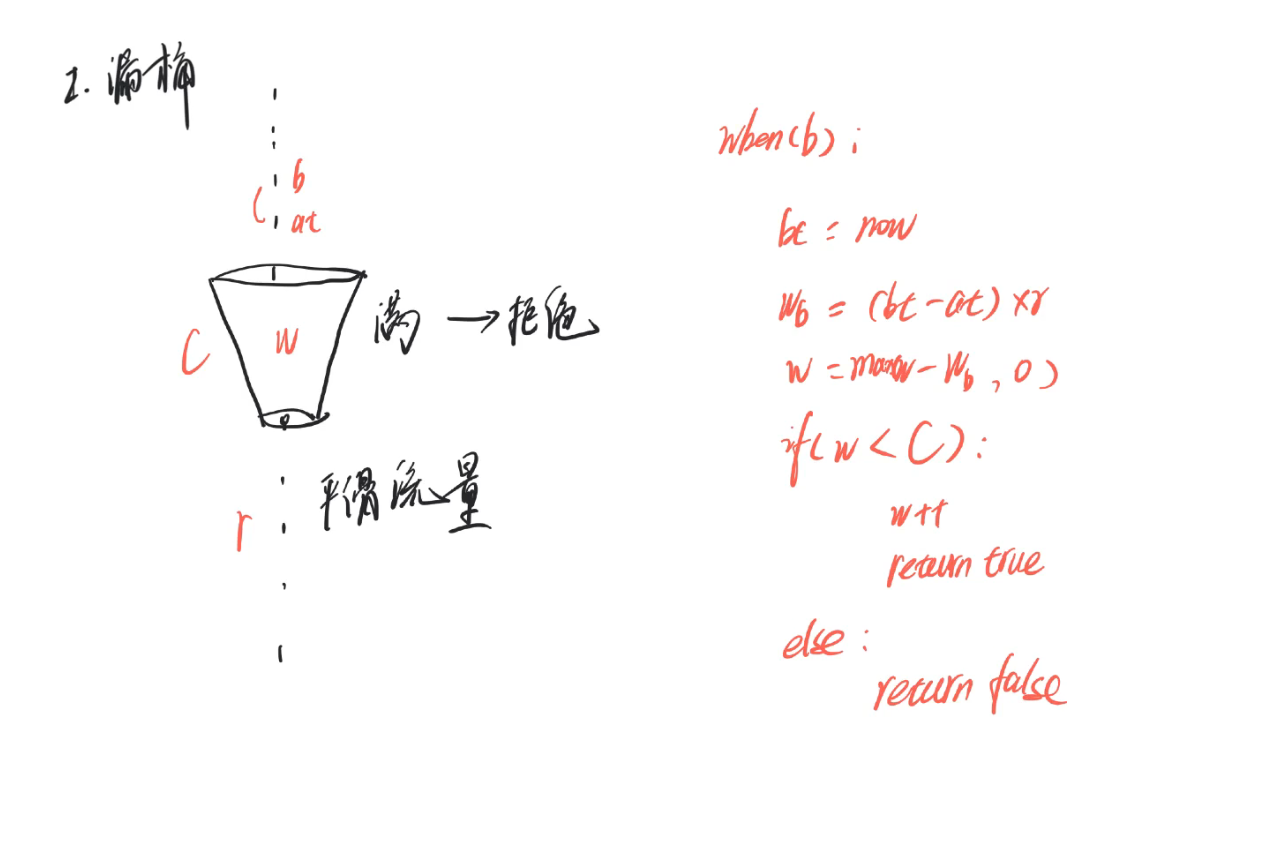 2. 漏桶
b
at
C
w
满 → 拒绝
r
平滑流量
when(b):
bt = now
Wb = (bt-at)×r
w = max(w-Wb, 0)
if(w < C):
w++
return true
else:
return false